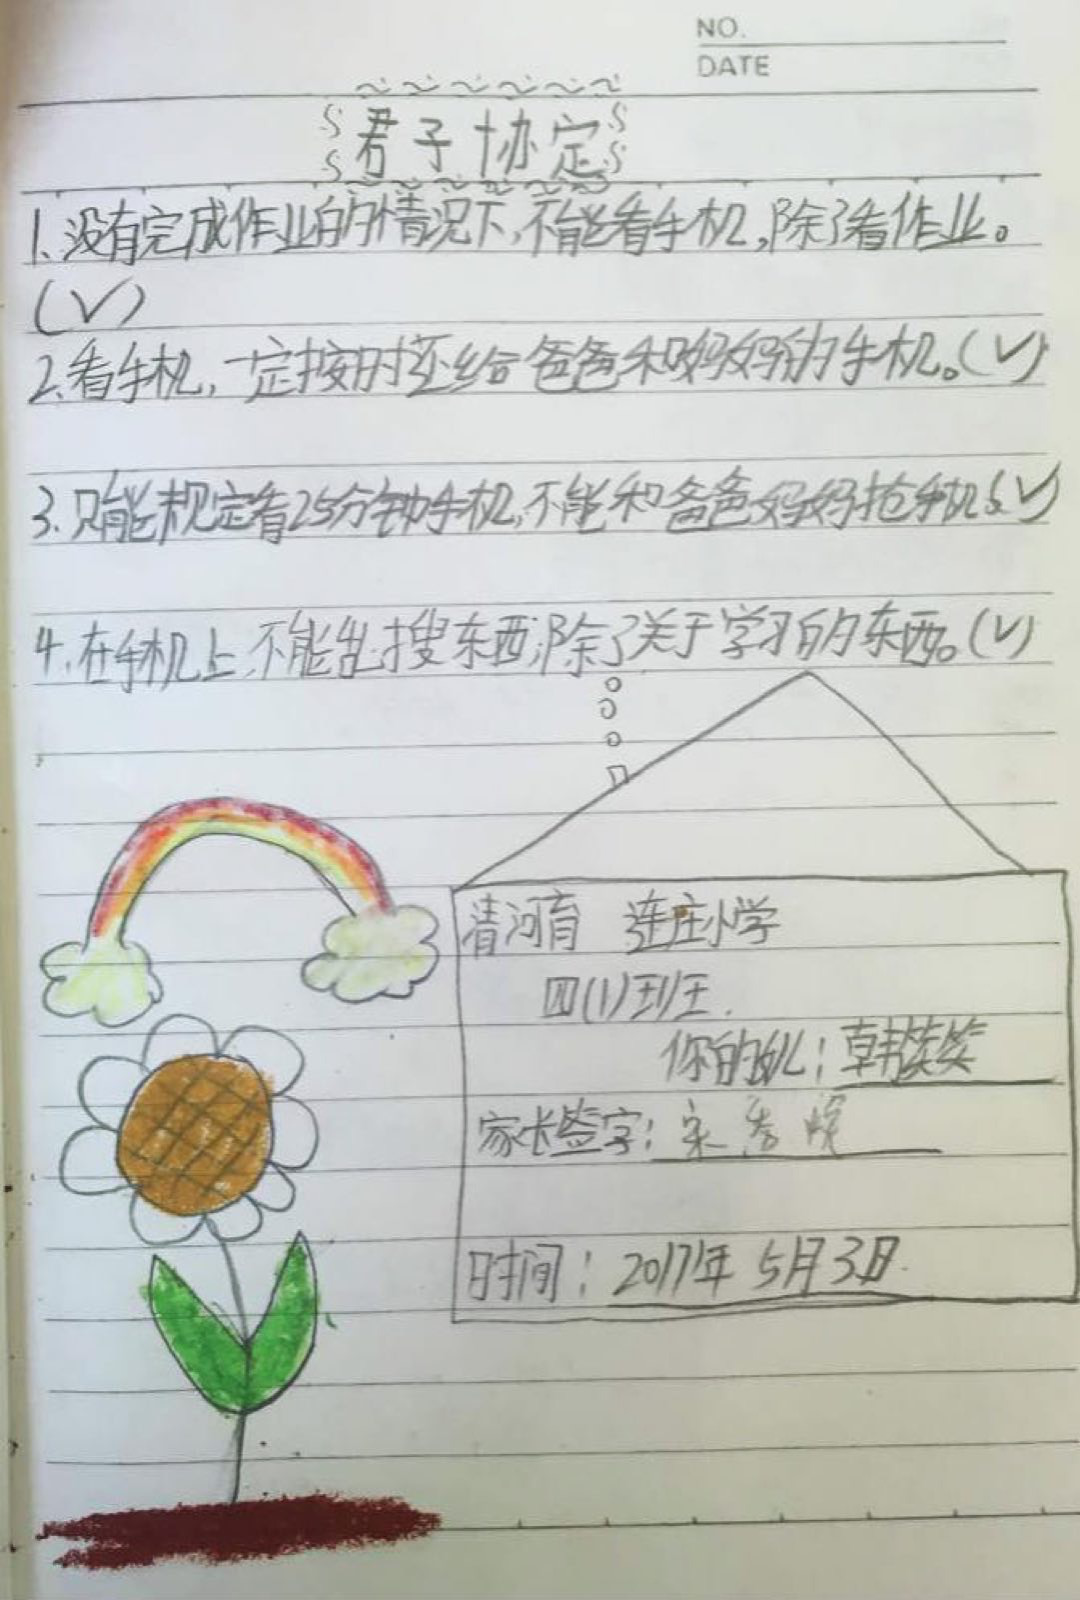 NO.
DATE
君子协定
1.没有完成作业的情况下,不能看手机,除了看作业。
(√)
2.看手机,一定按时还给爸爸和妈妈的手机。(√)
3.只能规定看25分钟手机,不能和爸爸妈妈抢手机(√)
4.在手机上,不能乱搜东西,除了关于学习的东西。(√)
清河育 连庄小学
四(1)班
你的女儿:韩笑笑
家长签字:宋秀
时间:2017年5月3日.